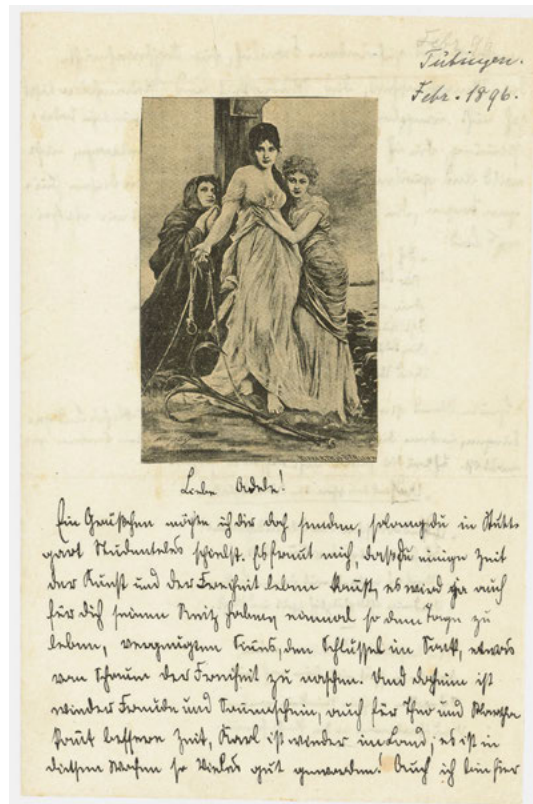 Tübingen.
Febr. 1896.
Liebe Adele!
Ein Grüßchen möchte ich dir doch senden, solang du in Stutt-
gart Studentles spielst. Es freut mich, daß du einige Zeit
der Kunst und der Freiheit leben kannst, es wird ja auch
für dich seinen Reiz haben, einmal so dem Tage zu
leben, vergnügten Sinns, den Schlüssel im Sack, etwas
vom Schaum der Freiheit zu naschen. Und daheim ist
wieder Freude und Sonnenschein, auch für Theo und Martha
kommt bessere Zeit, Karl ist wieder im Land; es ist in
diesen Wochen so Vieles gut geworden! Auch ich bin hier